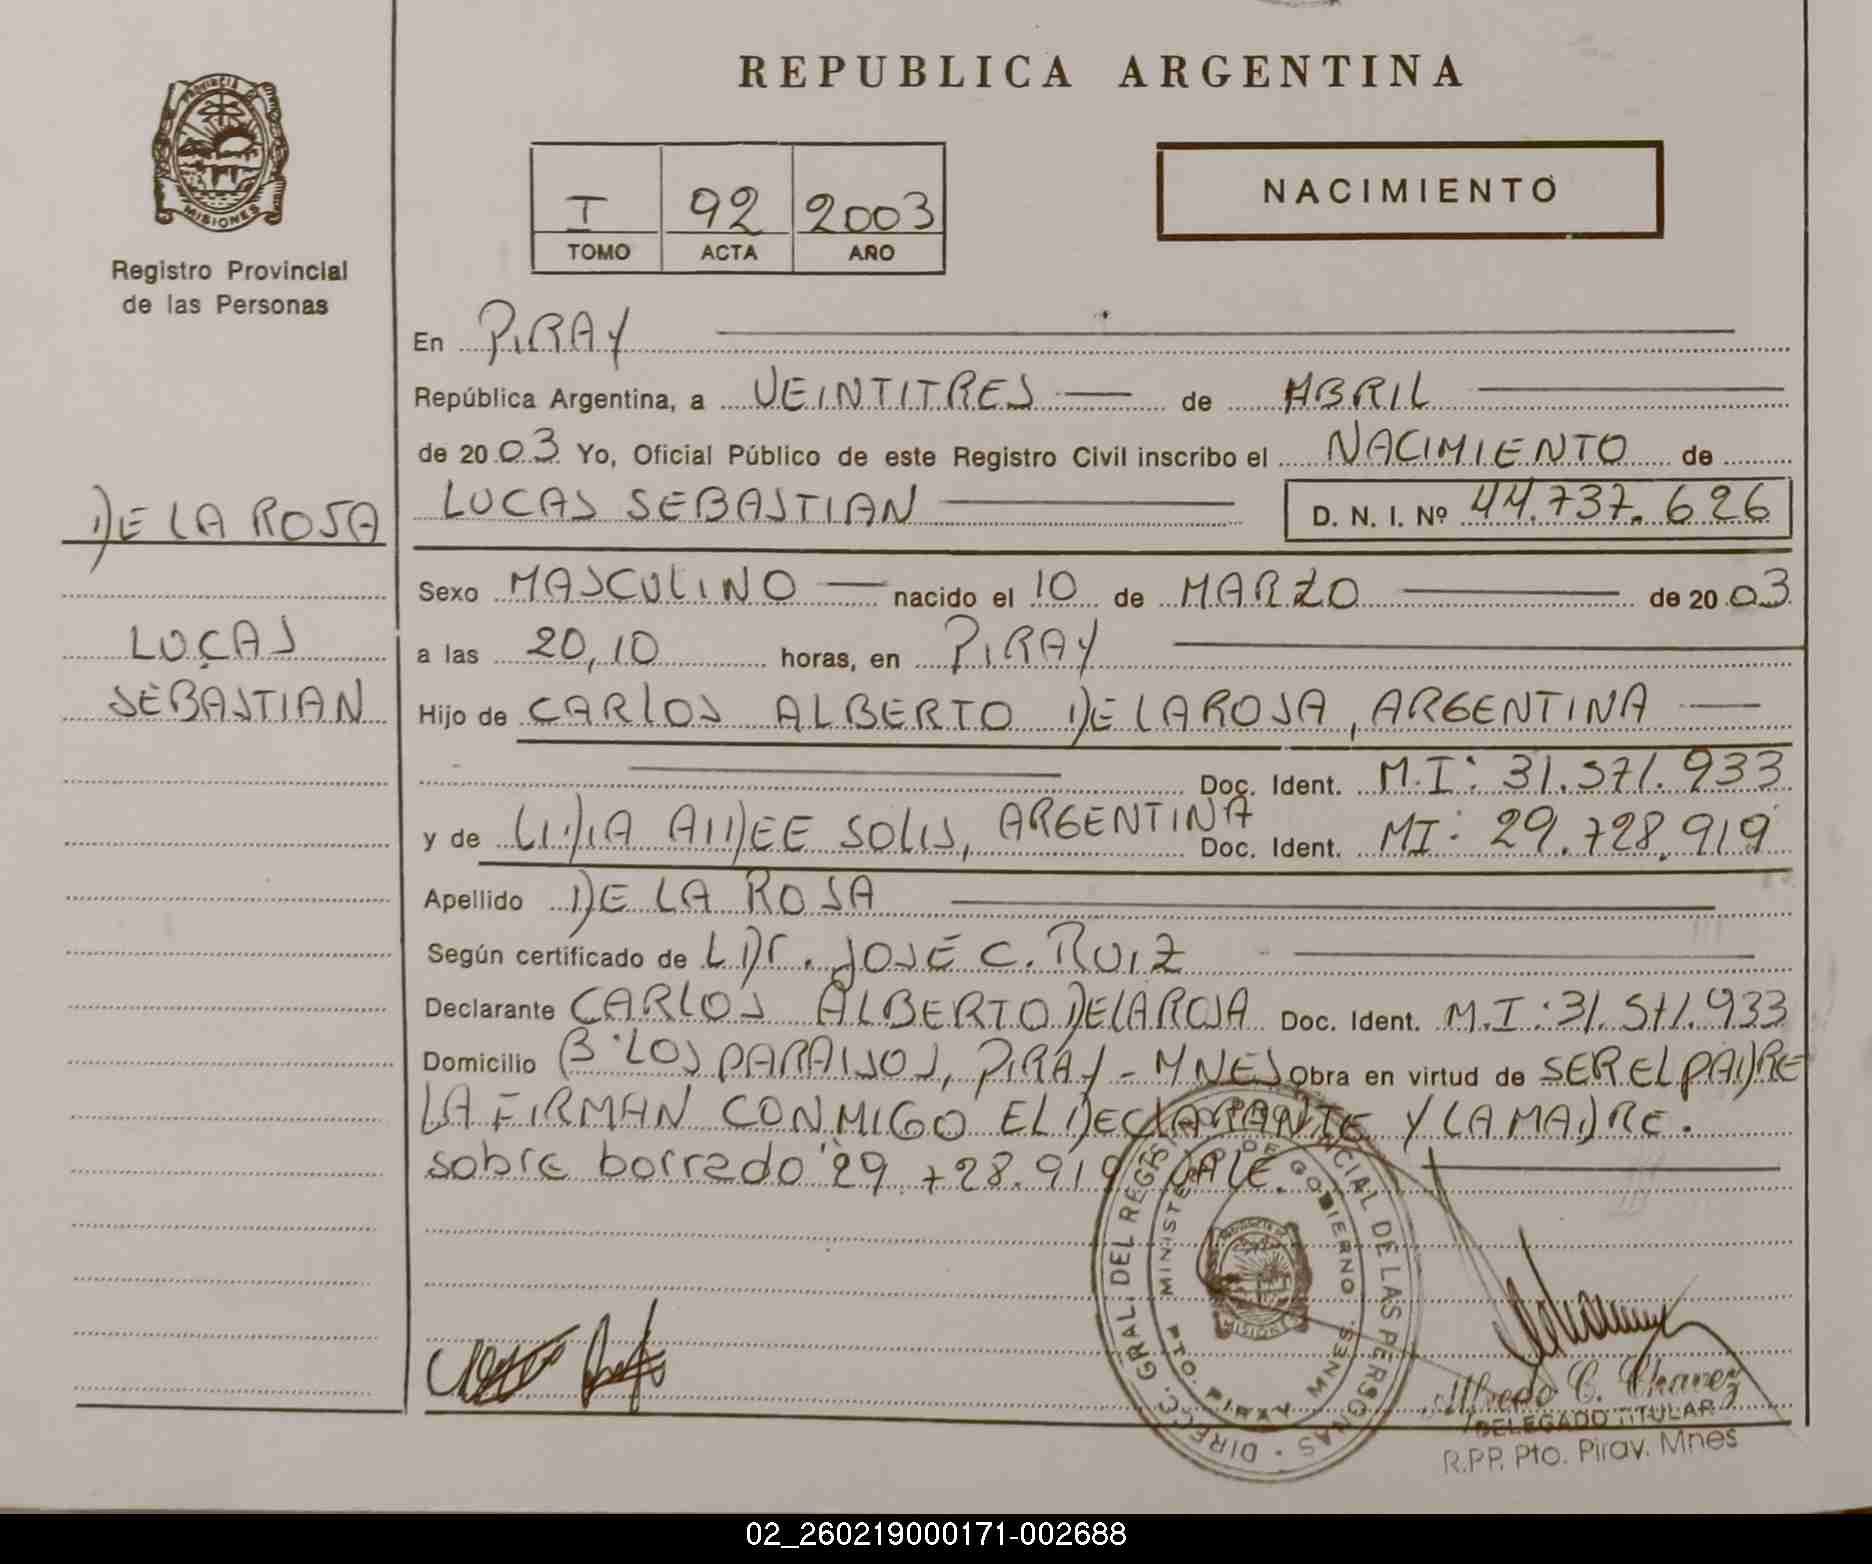 REPUBLICA ARGENTINA
PROVINCIA DE
MISIONES
Registro Provincial
de las Personas
I 92 2003
TOMO ACTA AÑO
NACIMIENTO
En PIRAY
República Argentina, a VEINTITRES de ABRIL
de 2003 Yo, Oficial Público de este Registro Civil inscribo el NACIMIENTO de
DE LA ROSA
LUCAS SEBASTIAN D. N. I. Nº 44.737.626
Sexo MASCULINO nacido el 10 de MARZO de 2003
LUCAS
a las 20,10 horas, en PIRAY
SEBASTIAN
Hijo de CARLOS ALBERTO DE LA ROSA, ARGENTINA
Doc. Ident. M.I: 31.571.933
y de LIDIA AIDEE SOLIS, ARGENTINA Doc. Ident. MI: 29.728.919
Apellido DE LA ROSA
Según certificado de L Dr. JOSE C. RUIZ
Declarante CARLOS ALBERTO DE LA ROSA Doc. Ident. M.I: 31.571.933
Domicilio Bº LOS PARAISOS, PIRAY - MNES Obra en virtud de SER EL PADRE
LA FIRMAN CONMIGO EL DECLARANTE Y LA MADRE.
sobre borrado 29.728.919 VALE.
DIRECC. GRAL. DEL REGIS PROVINCIAL DE LAS PERSONAS
MINISTERIO DE GOBIERNO
PTO. PIRAY MNES.
MISIONES
Alfredo C. Chavez
DELEGADO TITULAR
R.P.P. Pto. Piray. Mnes
02_260219000171-002688